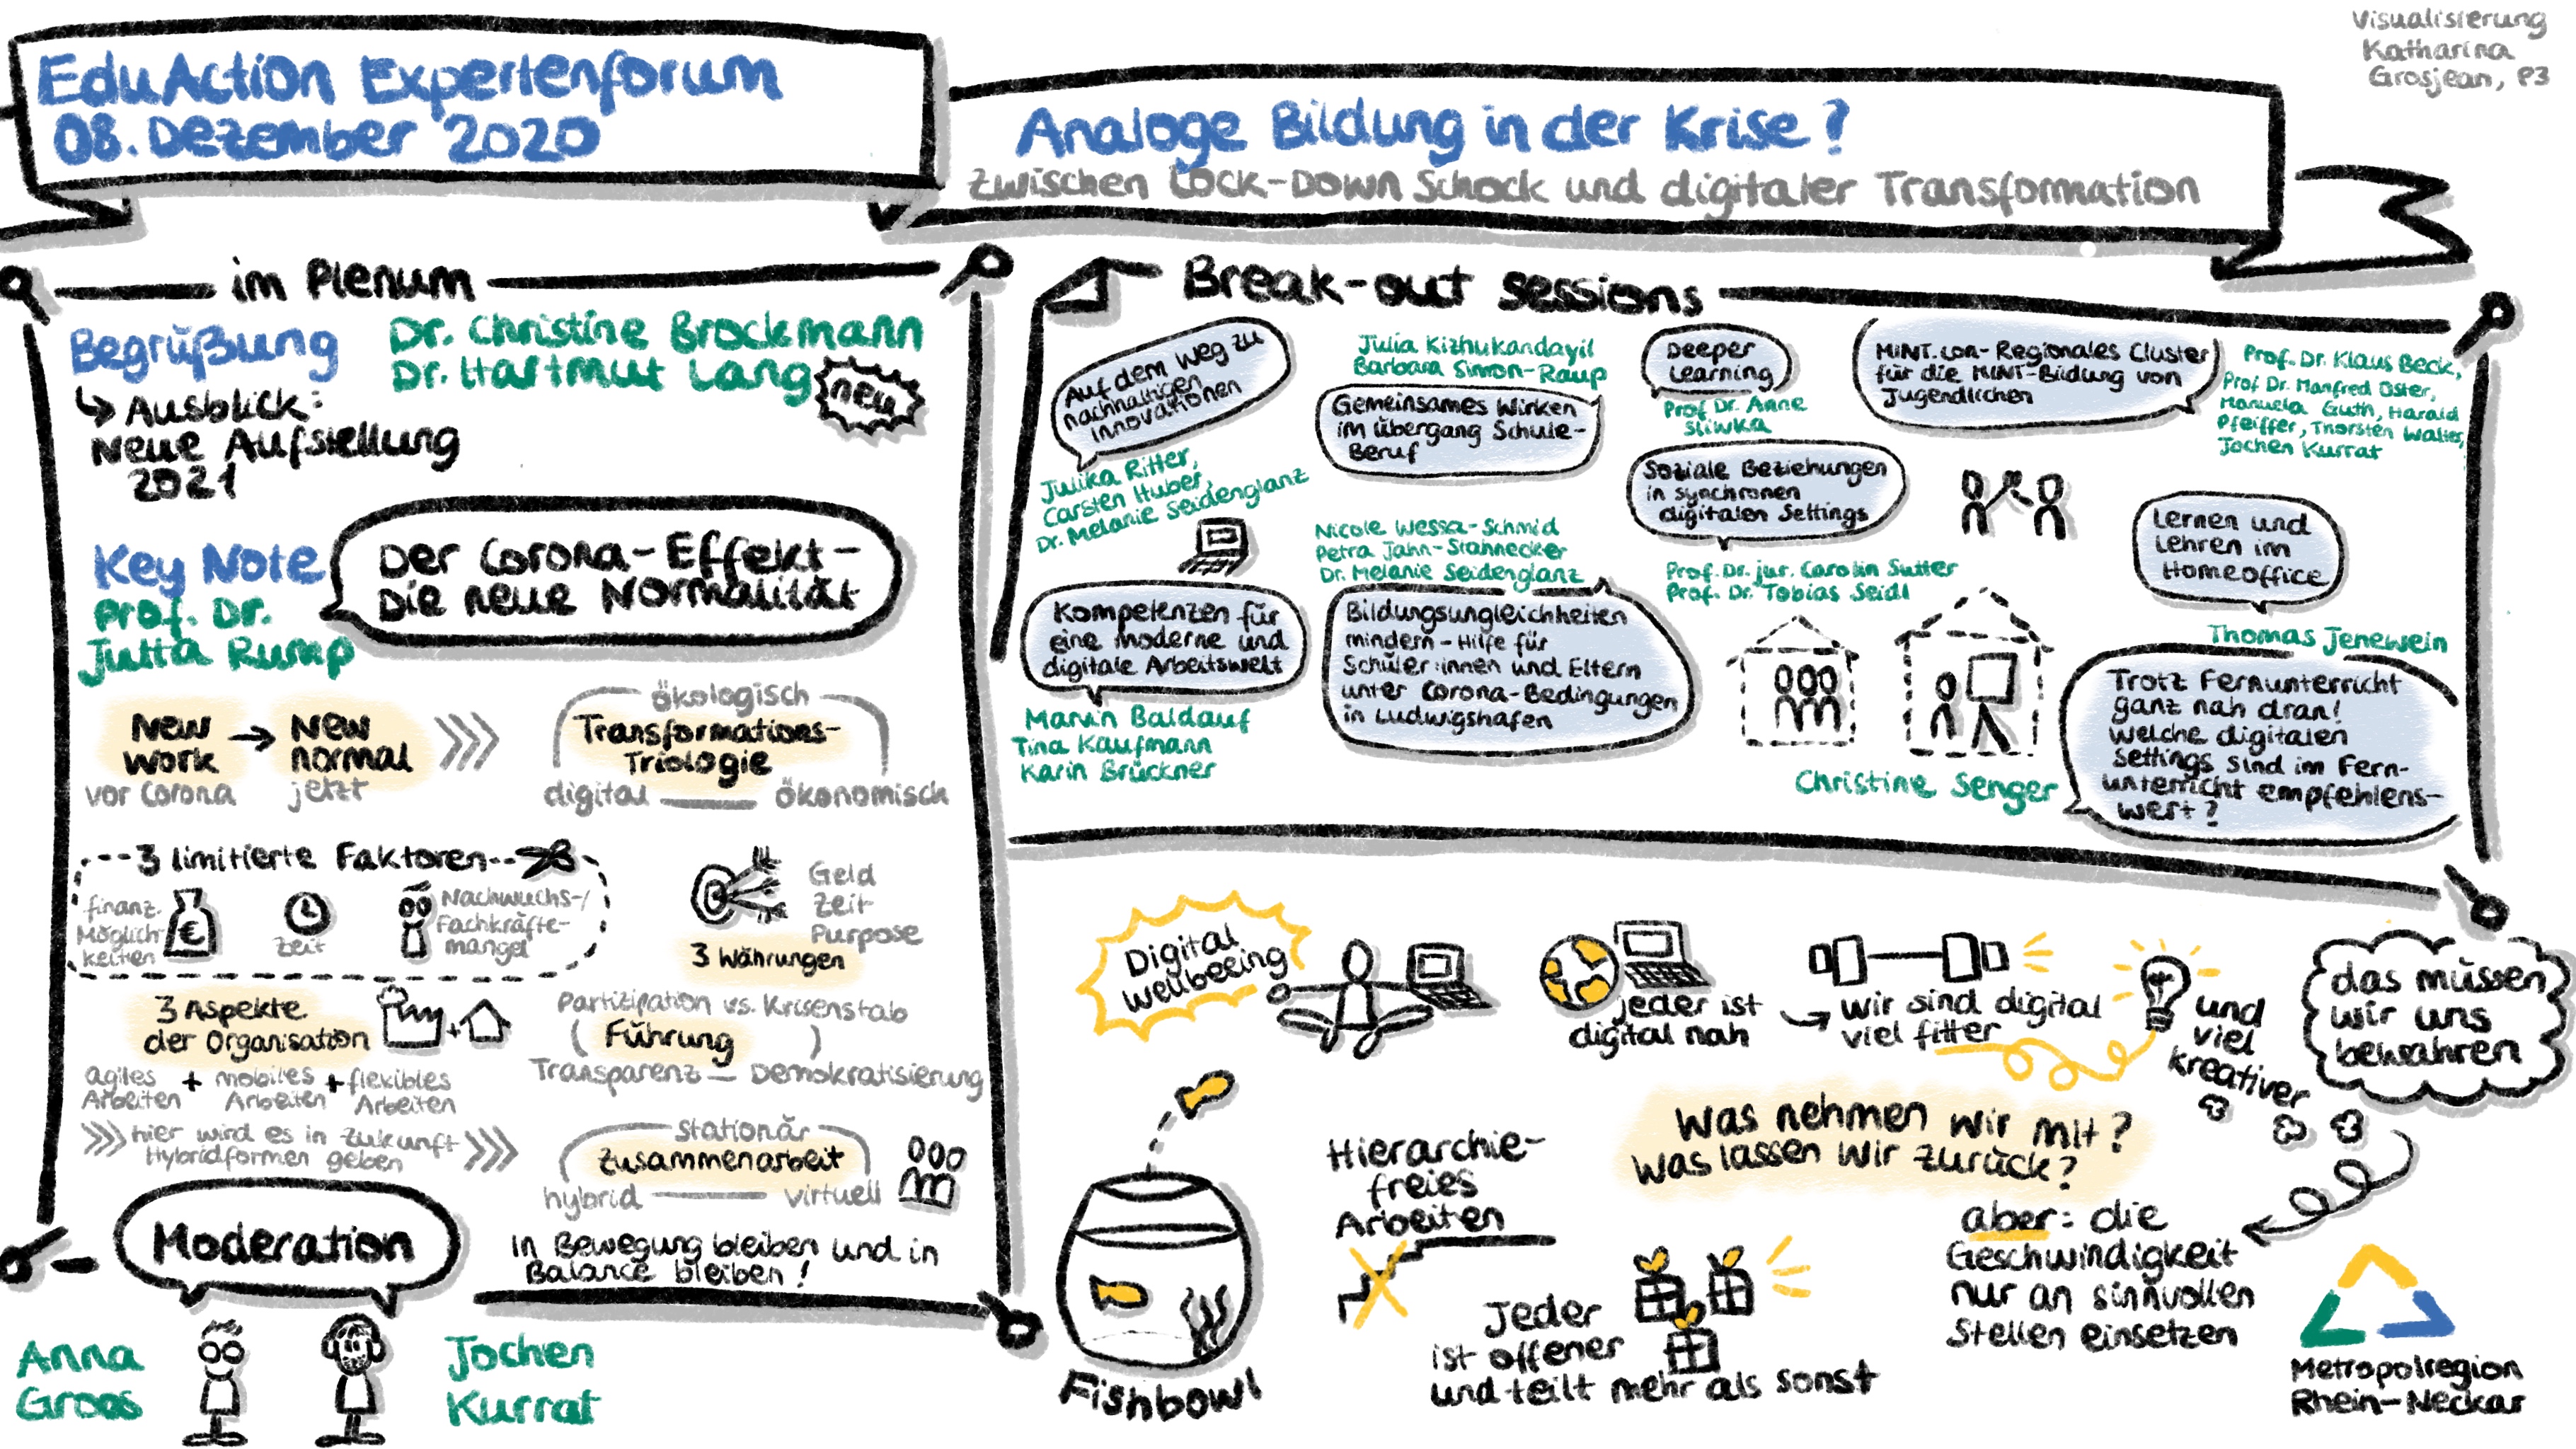 Visualisierung
Katharina
Grosjean, P3
EduAction Expertenforum
08. Dezember 2020
Analoge Bildung in der Krise?
zwischen Lock-Down Schock und digitaler Transformation
im Plenum
Begrüßung
Dr. Christine Brockmann
Dr. Hartmut Lang
neu
↳ Ausblick:
Neue Aufstellung
2021
Key Note
Prof. Dr.
Jutta Rump
Der Corona-Effekt-
Die neue Normalität
New
work
→
New
normal
vor Corona
jetzt
ökologisch
Transformations-
Triologie
digital
ökonomisch
3 limitierte Faktoren
finanz.
Möglich-
keiten
€
Zeit
Nachwuchs-/
Fachkräfte-
mangel
Geld
Zeit
Purpose
3 Währungen
3 Aspekte
der Organisation
+
agiles
Arbeiten
+
mobiles
Arbeiten
+
flexibles
Arbeiten
hier wird es in Zukunft
Hybridformen geben
Partizipation vs. Krisenstab
( Führung )
Transparenz – Demokratisierung
stationär
Zusammenarbeit
hybrid
virtuell
In Bewegung bleiben und in
Balance bleiben!
Moderation
Anna
Groos
Jochen
Kurrat
Break-out sessions
Auf dem Weg zu
nachhaltigen
Innovationen
Julika Ritter,
Carsten Huber,
Dr. Melanie Seidenglanz
Julia Kizhukandayil
Barbara Simon-Raup
Gemeinsames Wirken
im Übergang Schule-
Beruf
Deeper
Learning
Prof. Dr. Anne
Sliwka
MINT.LOR- Regionales Cluster
für die MINT-Bildung von
Jugendlichen
Prof. Dr. Klaus Beck,
Prof Dr. Manfred Oster,
Manuela Guth, Harald
Pfeiffer, Thorsten Walter,
Jochen Kurrat
Soziale Beziehungen
in synchronen
digitalen Settings
Prof. Dr. jur. Carolin Sutter
Prof. Dr. Tobias Seidl
Lernen und
Lehren im
Homeoffice
Thomas Jenewein
Kompetenzen für
eine moderne und
digitale Arbeitswelt
Marvin Baldauf
Tina Kaufmann
Karin Brückner
Nicole Wessa-Schmid
Petra Jahn-Stahnecker
Dr. Melanie Seidenglanz
Bildungsungleichheiten
mindern - Hilfe für
Schüler:innen und Eltern
unter Corona-Bedingungen
in Ludwigshafen
Christine Senger
Trotz Fernunterricht
ganz nah dran!
Welche digitalen
Settings sind im Fern-
unterricht empfehlens-
wert?
Digital
wellbeeing
jeder ist
digital nah
→ wir sind digital
viel fitter
und
viel
kreativer
das müssen
wir uns
bewahren
Fishbowl
Hierarchie-
freies
Arbeiten
Was nehmen wir mit?
Was lassen wir zurück?
Jeder
ist offener
und teilt mehr als sonst
aber: die
Geschwindigkeit
nur an sinnvollen
Stellen einsetzen
Metropolregion
Rhein-Neckar